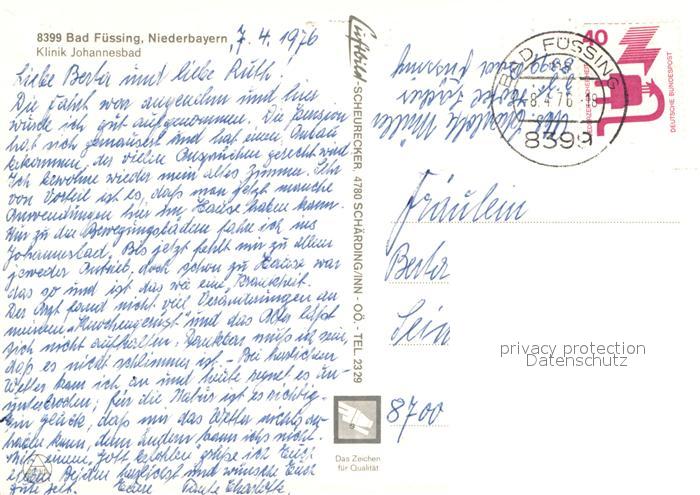 8399 Bad Füssing, Niederbayern
Klinik Johannesbad
7. 4. 1976
Liebe Berta und liebe Ruth!
Die Fahrt war angenehm und hier
wurde ich gut aufgenommen. Die Pension
hat sich gemausert und hat einen Anbau
bekommen, der vielen Ansprüchen gerecht wird.
Ich bewohne wieder mein altes Zimmer. Sehr
von Vorteil ist es, daß man jetzt manche
Anwendungen hier im Hause haben kann.
Nur zu den Bewegungsbädern fahre ich ins
Johannesbad. Bis jetzt fehlt mir zu allem
jeweder Antrieb, doch schon zu Hause war
das so und ist das wie eine Krankheit.
Der Arzt fand nicht viel Veränderungen an
meinem „Knochengerüst" und das Alter läßt
sich nicht aufhalten; dankbar muß ich sein,
daß es nicht schlimmer ist. - Bei herrlichem
Wetter kam ich an und heute regnet es un-
unterbrochen; für die Natur ist es wichtig.
Ein Glück, daß mir das Wetter nichts an-
haben kann, denn ändern kann ich's nicht.
Mit einem „Gott befohlen" grüße ich Euch
Beiden herzlichst und wünsche Euch
gute Zeit. Eure Tante Charlotte.
Luftbild-SCHEURECKER, 4780 SCHÄRDING/INN - OÖ. - TEL. 2329
Das Zeichen
für Qualität
Abs. Charlotte Müller
8399 Bad Füssing
40
DEUTSCHE BUNDESPOST
BAD FÜSSING
-8.4.76-18
8399
Fräulein
Berta
Sein
8700
privacy protection
Datenschutz